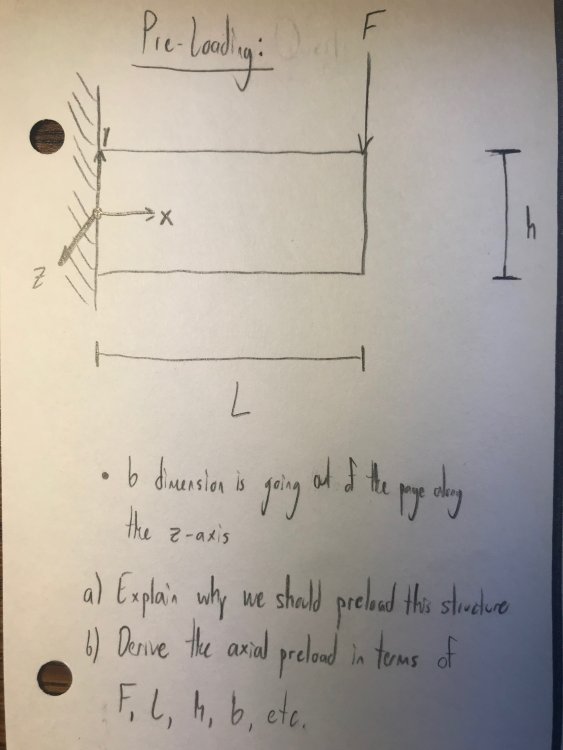 Pre-Loading:
F
Y
X
Z
h
L
• b dimension is going out of the page along
the z-axis
a) Explain why we should preload this structure
b) Derive the axial preload in terms of
F, L, h, b, etc.